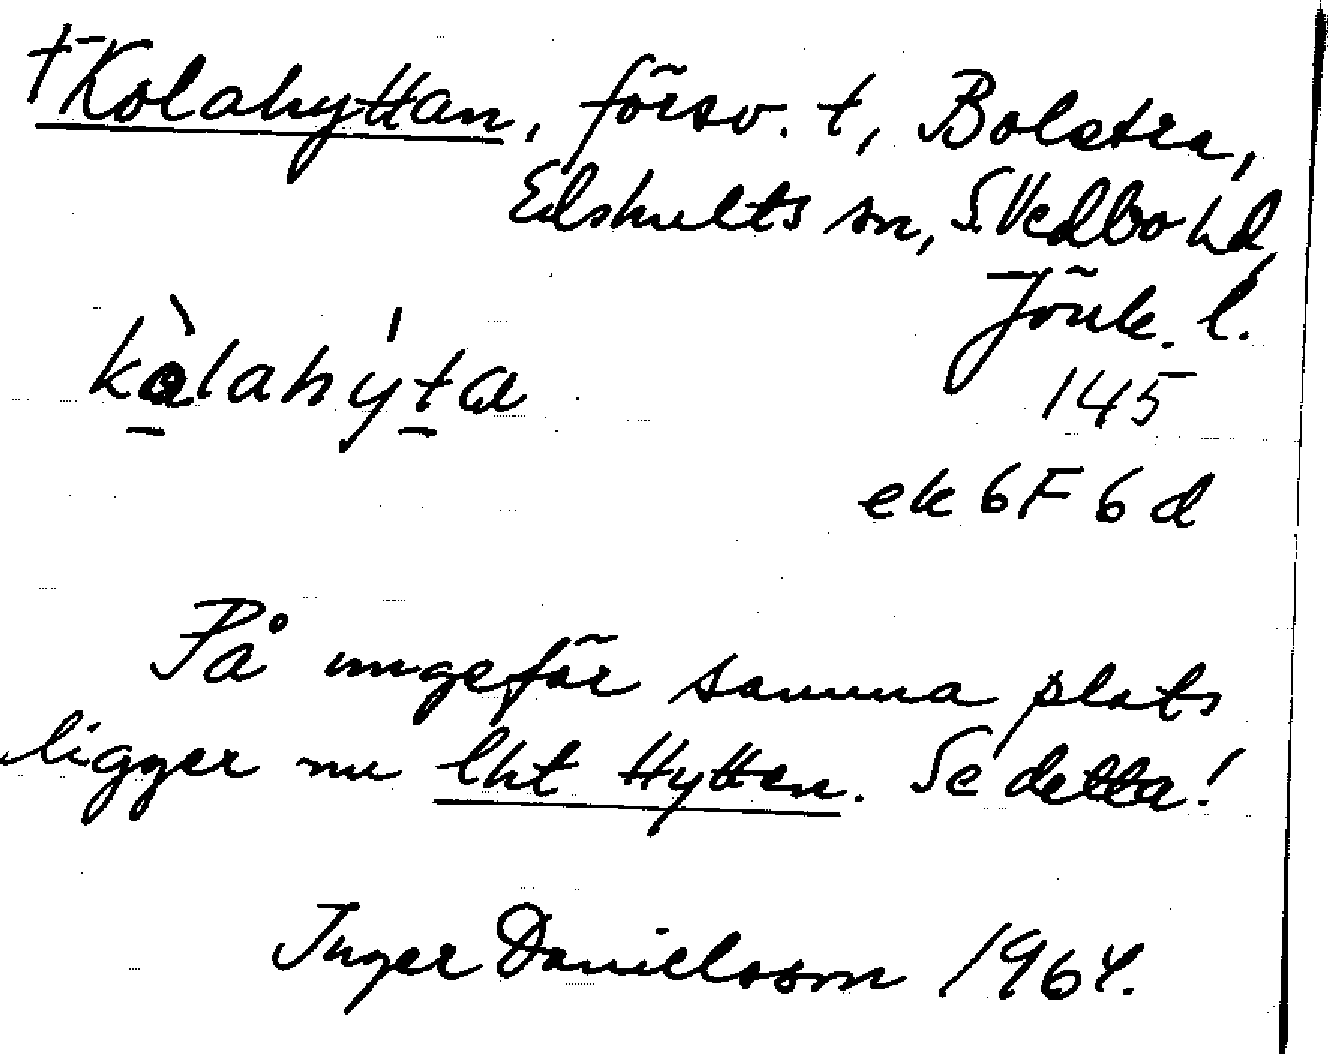 †Kolahyttan, försv. t, Bolstra,
Edshults sn, S. Vedbo hd,
Jönk. l.
kòlahýta
145
ek 6F 6d
På ungefär samma plats
ligger nu lht Hyttan. Se detta!
Inger Danielsson 1964.